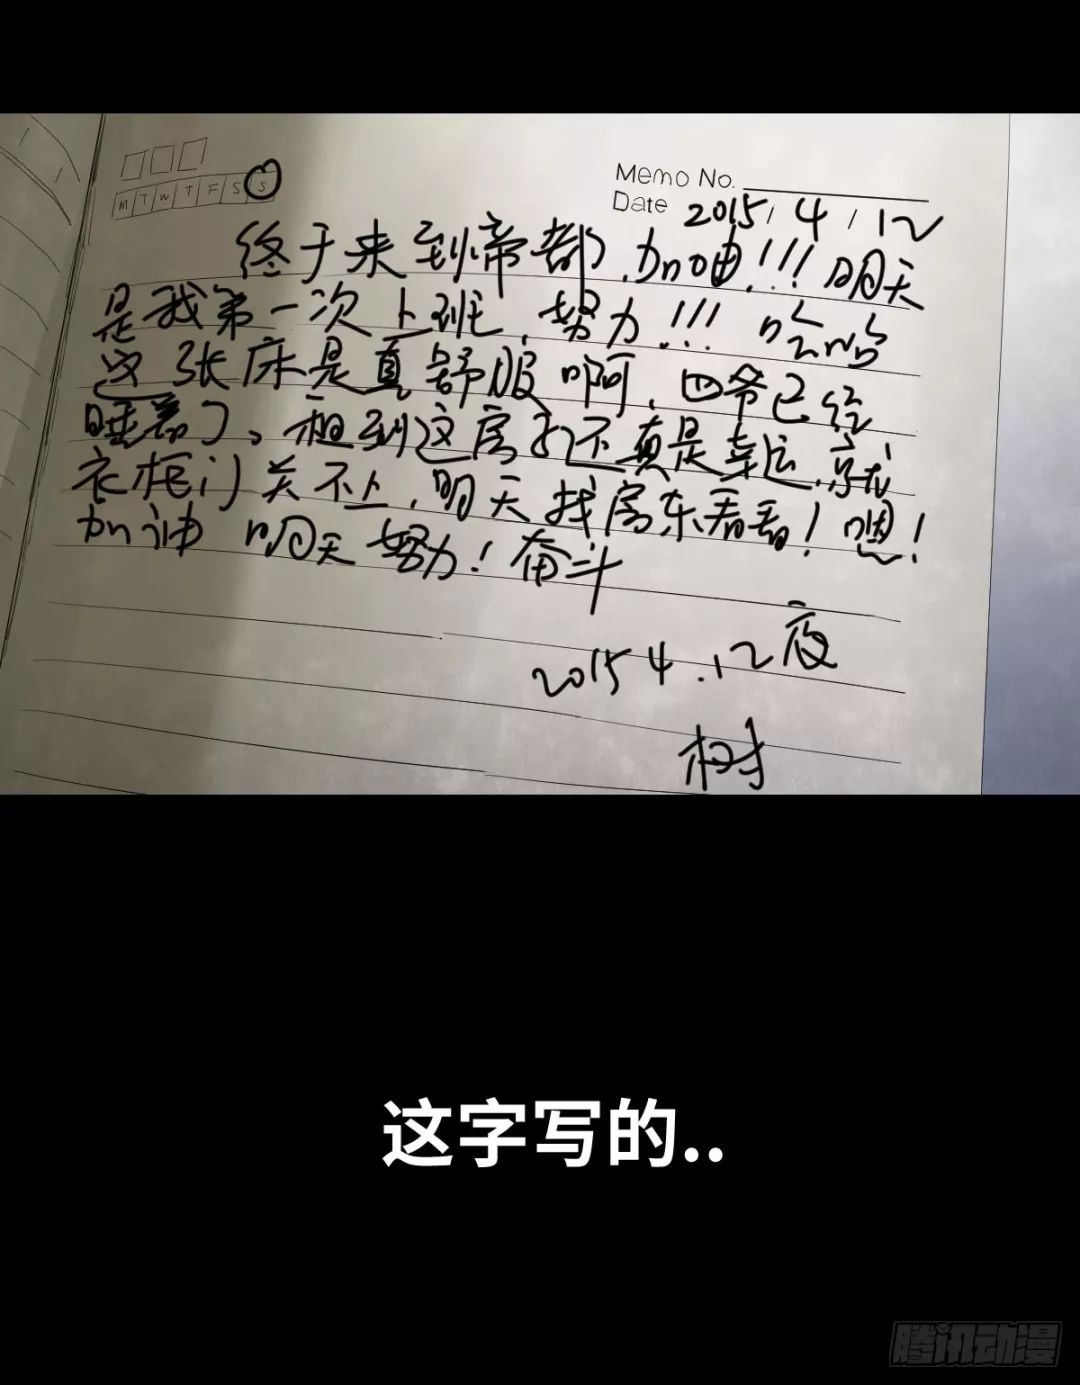 M T W T F S S
Memo No.
Date 2015/4/12
终于来到帝都,加油!!!明天
是我第一次上班,努力!!!哈哈
这张床是真舒服啊,四爷已经
睡着了。租到这房子还真是幸运,就
衣柜门关不上,明天找房东看看!嗯!
加油 明天努力!奋斗
2015 4.12夜
树
这字写的..
腾讯动漫